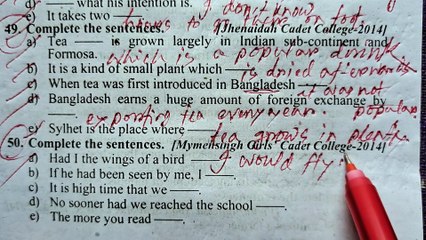 d) —— what his intention is. I don't know
e) It takes two —— hours to go there on foot.
49. Complete the sentences. [Jhenaidah Cadet College-2014]
a) Tea —— is grown largely in Indian sub-continent and
Formosa. which is a popular drink
b) It is a kind of small plant which ——. is dried
c) When tea was first introduced in Bangladesh —— it was not
popular.
d) Bangladesh earns a huge amount of foreign exchange by
——. exporting tea every year.
e) Sylhet is the place where ——. tea grows in plenty.
50. Complete the sentences. [Mymensingh Girls' Cadet College-2014]
a) Had I the wings of a bird ——. I would fly.
b) If he had been seen by me, I ——.
c) It is high time that we ——.
d) No sooner had we reached the school ——.
e) The more you read ——.